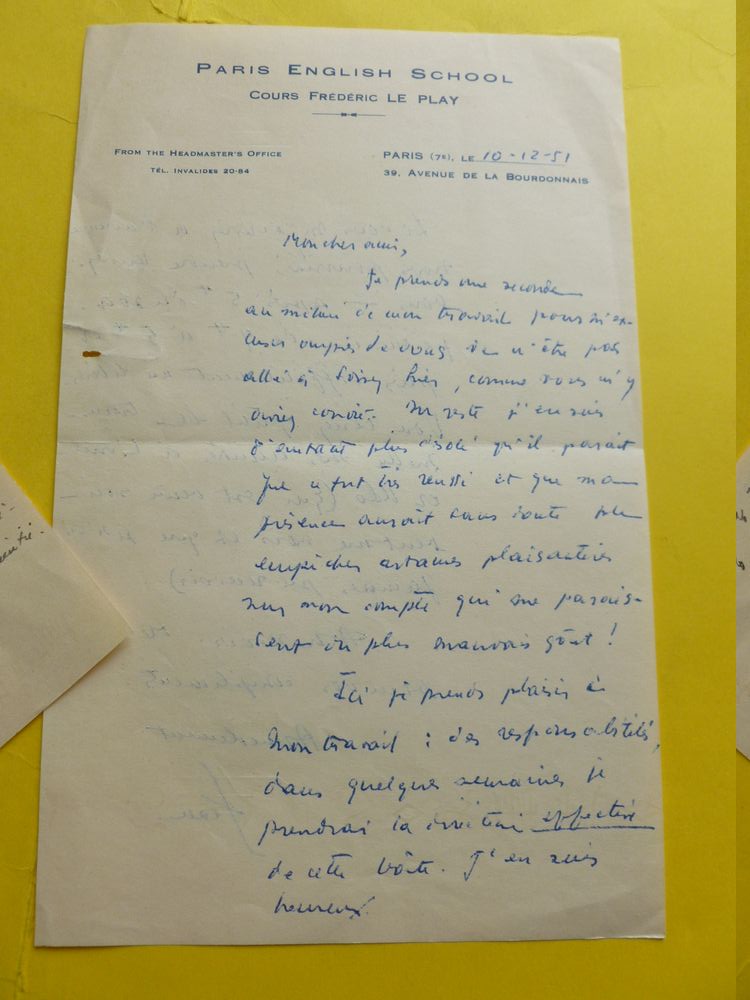 PARIS ENGLISH SCHOOL
COURS FRÉDÉRIC LE PLAY
FROM THE HEADMASTER'S OFFICE
TÉL. INVALIDES 20-84
PARIS (7E), LE 10-12-51
39, AVENUE DE LA BOURDONNAIS
Mon cher ami,
Je prends une seconde
au milieu de mon travail pour m'ex-
cuser auprès de vous de n'être pas
allé à Soisy hier, comme vous m'y
aviez convié. Du reste j'en suis
d'autant plus désolé qu'il paraît
que ce fut très réussi et que ma
présence aurait sans doute pu
empêcher certaines plaisanteries
sur mon compte qui me parais-
sent du plus mauvais goût !
Ici je prends plaisir à
mon travail : des responsabilités,
dans quelques semaines je
prendrai la direction effective
de cette boîte. J'en suis
heureux.